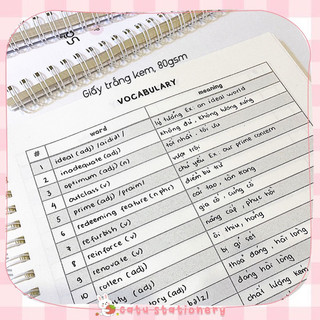 Giấy trắng kem, 80gsm
VOCABULARY
# word meaning
1 ideal (adj) /aɪˈdiəl/ lý tưởng Ex: an ideal world
2 inadequate (adj) không đủ, không tương xứng
3 optimum (adj) (n) tốt nhất, tối ưu
4 outclass (v) vượt trội
5 prime (adj) /praɪm/ chủ yếu Ex: our prime concern
6 redeeming feature (n phr) điểm bù trừ
7 refurbish (v) cải tạo, tân trang
8 reinforce (v) gia cố, củng cố
9 renovate (v) nâng cấp, phục hồi
10 rotten (adj) ôi thiu, hỏng
bị gỉ sét
thoả đáng, hài lòng
đáng hài lòng
chất lượng kém
catu.stationery